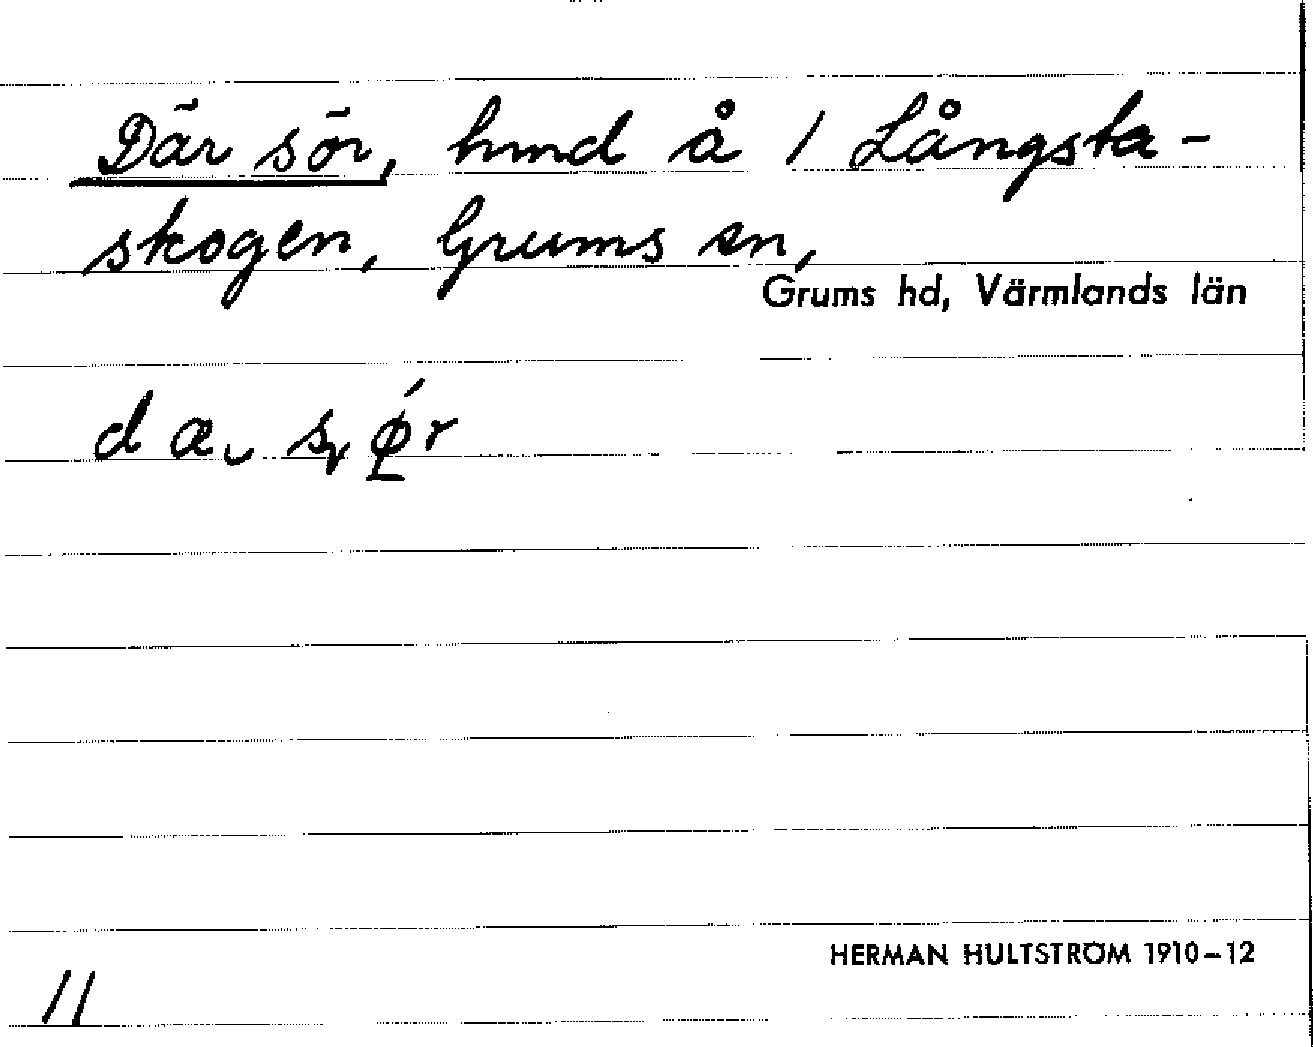 Där sör, hmd å 1 Långsta-
skogen, Grums sn,
Grums hd, Värmlands län
dœ sǿr
HERMAN HULTSTRÖM 1910–12
11